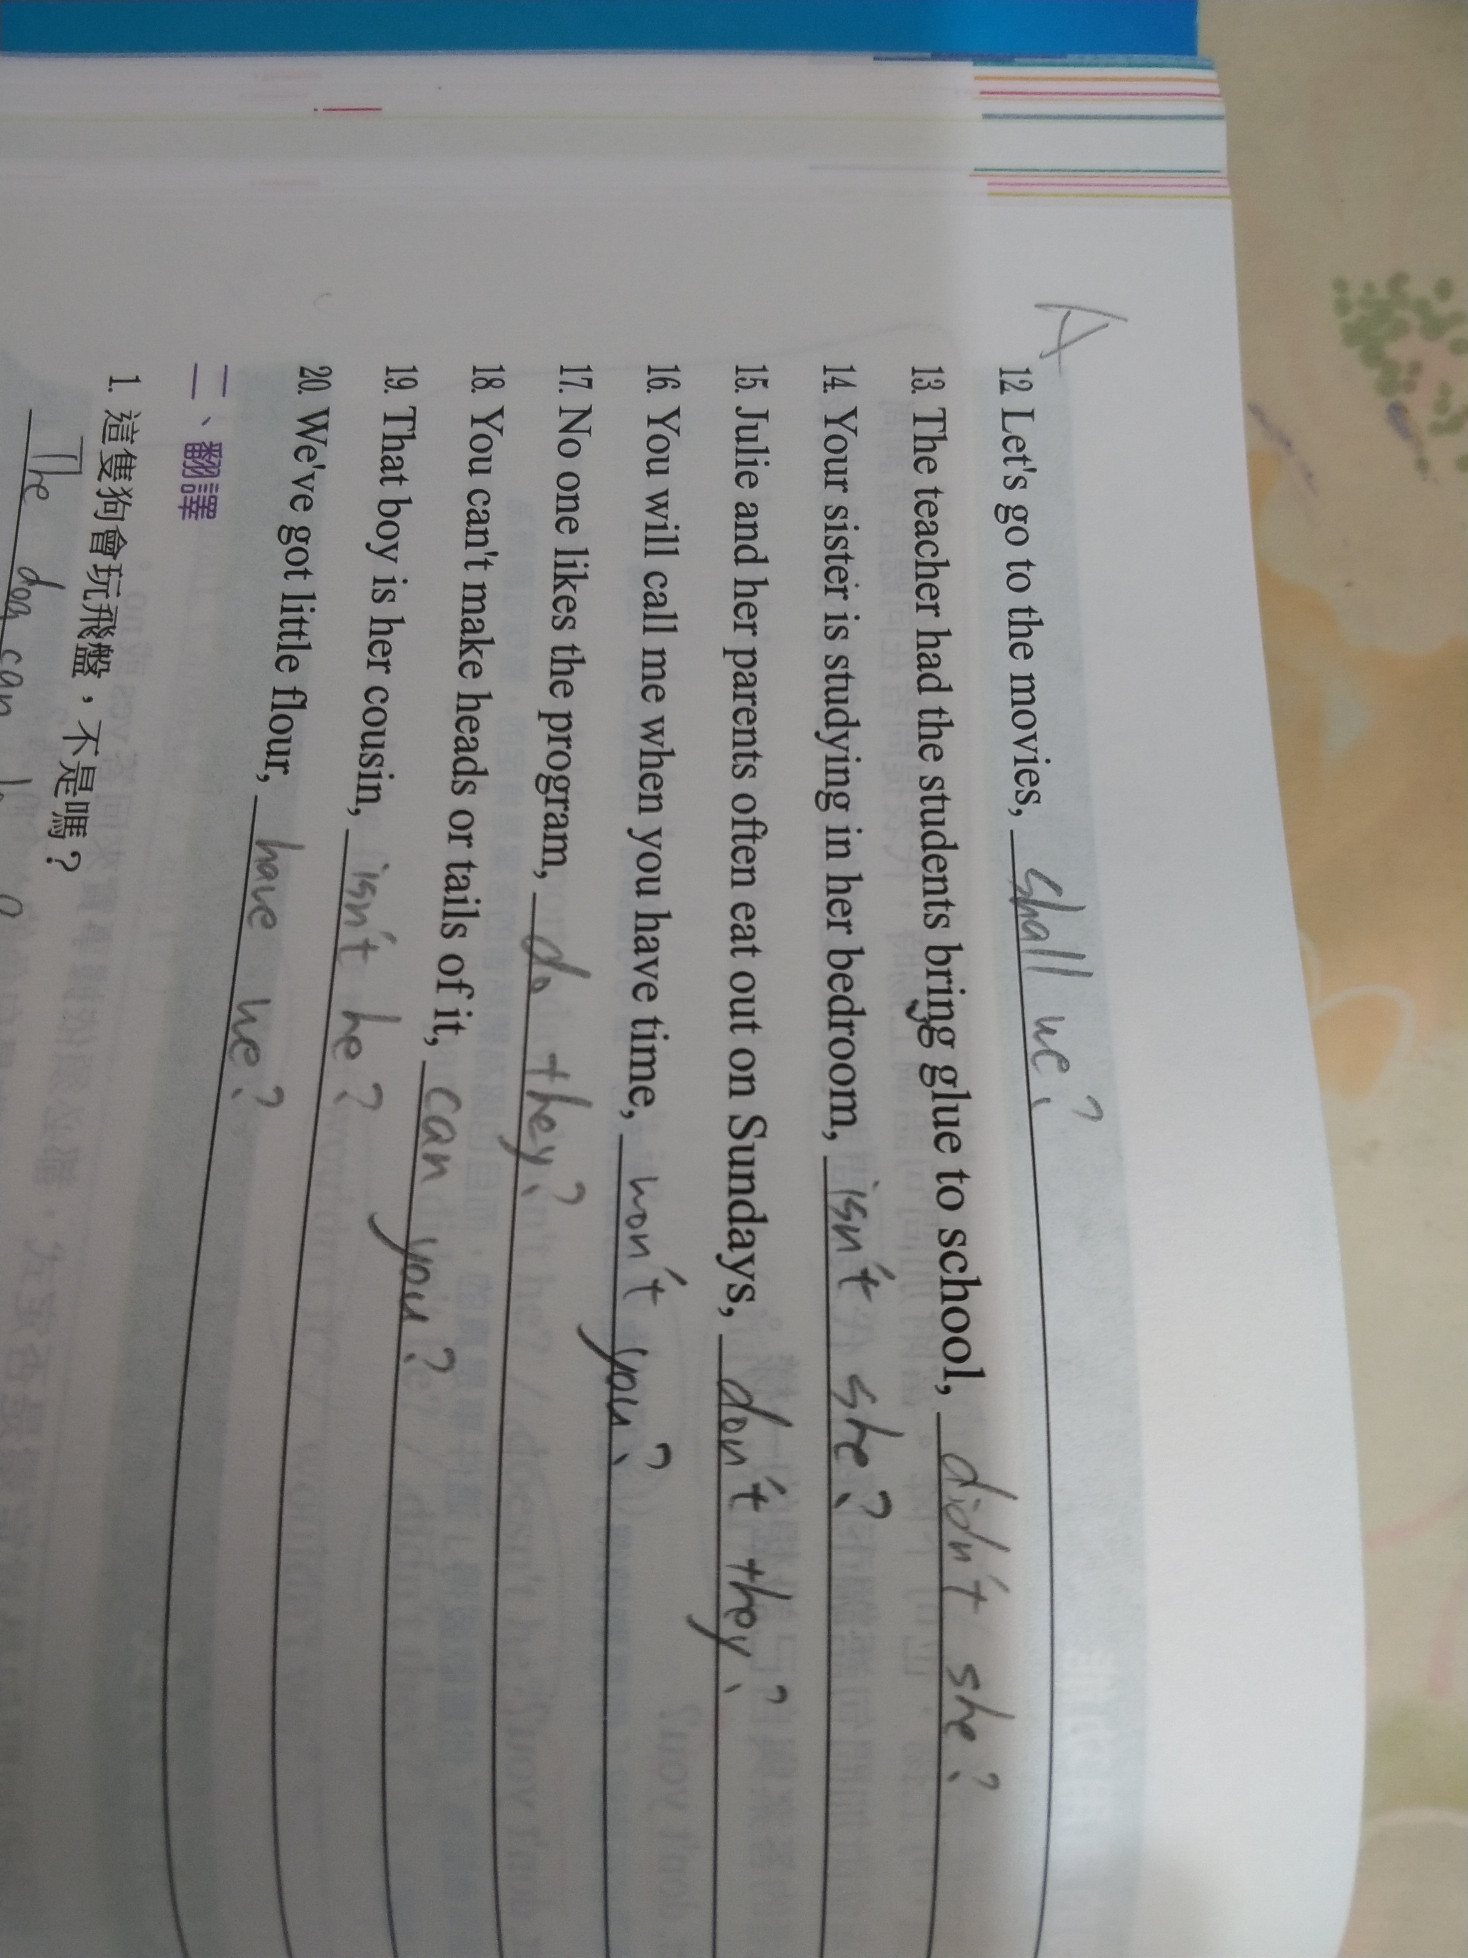 A
12. Let's go to the movies, shall we?
13. The teacher had the students bring glue to school, didn't she?
14. Your sister is studying in her bedroom, isn't she?
15. Julie and her parents often eat out on Sundays, don't they?
16. You will call me when you have time, won't you?
17. No one likes the program, do they?
18. You can't make heads or tails of it, can you?
19. That boy is her cousin, isn't he?
20. We've got little flour, have we?
二、翻譯
1. 這隻狗會玩飛盤，不是嗎？
The dog can